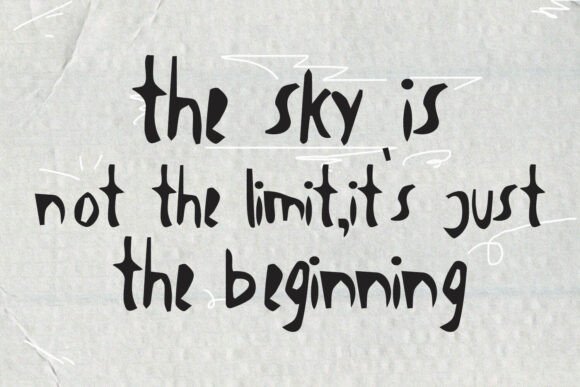 the sky is
not the limit,it's just
the beginning